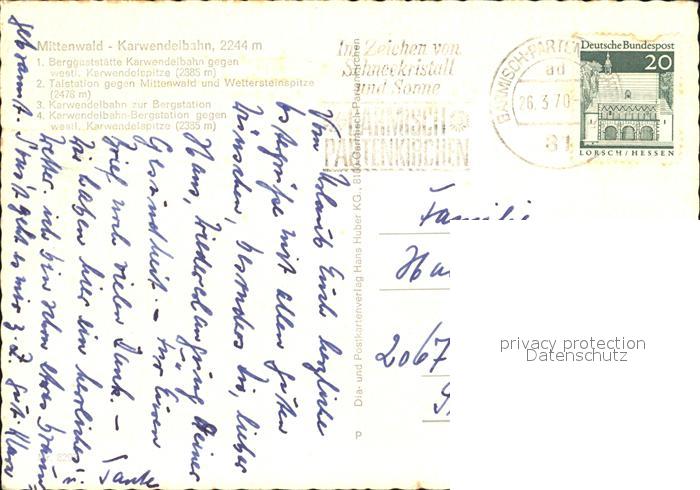 Mittenwald - Karwendelbahn, 2244 m
1. Berggaststätte Karwendelbahn gegen
westl. Karwendelspitze (2385 m)
2. Talstation gegen Mittenwald und Wettersteinspitze
(2476 m)
3. Karwendelbahn zur Bergstation
4. Karwendelbahn-Bergstation gegen
westl. Karwendelspitze (2385 m)
Im Zeichen von
Schneekristall
und Sonne
GARMISCH
PARTENKIRCHEN
GARMISCH-PARTEN
26.3.70
81
Deutsche Bundespost
20
LORSCH/HESSEN
Dia- und Postkartenverlag Hans Huber KG., 8100 Garmisch-Partenkirchen
P
Vom Urlaub Euch herzliche
Ostergrüße mit allen guten
Wünschen, besonders Dir, lieber
Hans, Wiedererlangung Deiner
Gesundheit. - Für Euren
Brief noch vielen Dank. -
Wir haben hier ein herrliches
Wetter. ich bin schon etwas braun
gebrannt. Sonst geht es mir z. Z. gut.
Tante
Familie
Ha
2067
privacy protection
Datenschutz